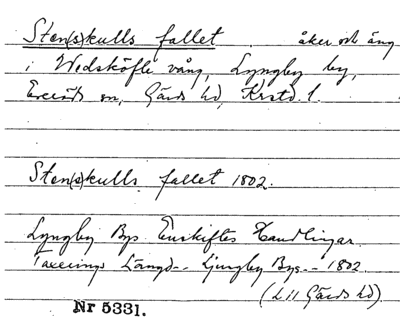 Sten(s)kulls fallet åker och äng
i Widsköfle vång, Lyngby by,
Everöds sn, Gärds hd, Krstd. l.
Sten(s)kulls fallet 1802.
Lyngby Bys Enskiftes Handlingar
Taxerings Längd-- Ljungby Bys-- 1802
(L II Gärds hd)
Nr 5331.